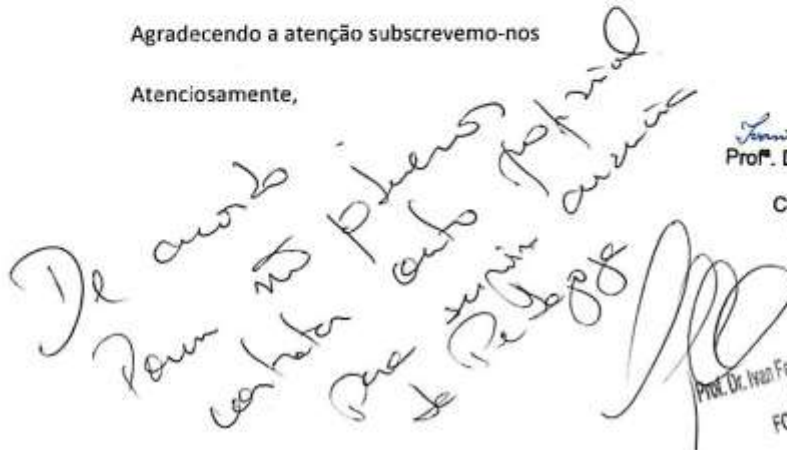 Agradecendo a atenção subscrevemo-nos
Atenciosamente,
De acordo
Porem não podemos
contratar outro profissional
para suprir ausência
da Pedagoga
Profª. D
C
Prof. Dr. Ivan F
FC